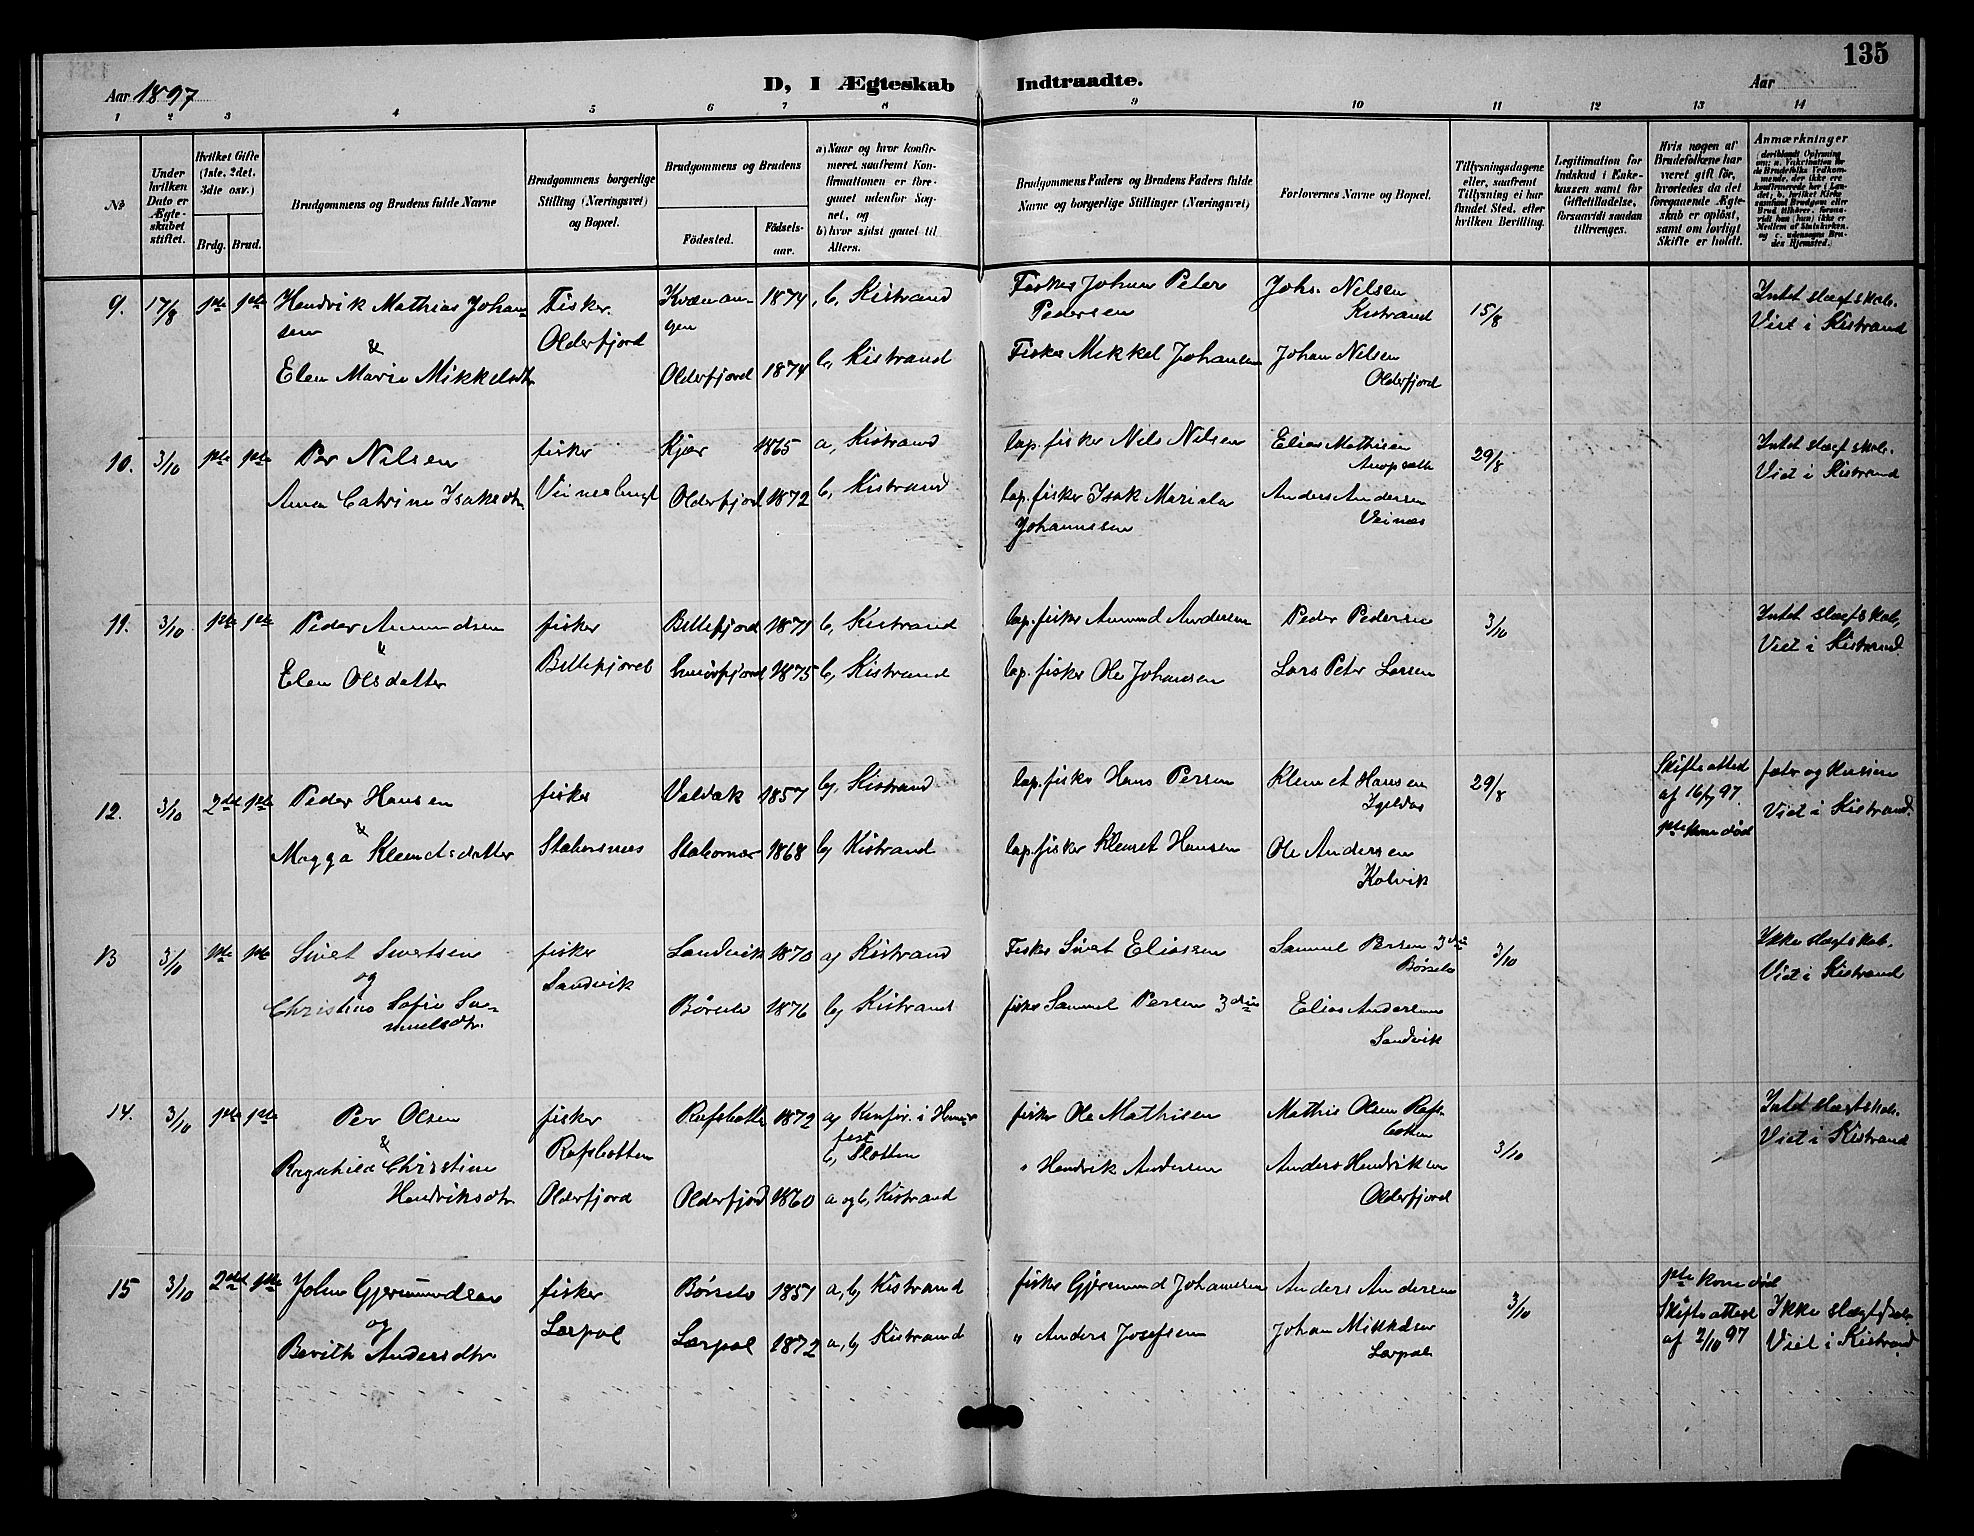 135
Aar 1897
D, I Ægteskab Indtraadte.
Aar
1 2 3 4 5 6 7 8 9 10 11 12 13 14
№
Under hvilken Dato er Ægteskabet stiftet.
Hvilket Gifte (1ste, 2det, 3die osv.)
Brdg. Brud.
Brudgommens og Brudens fulde Navne
Brudgommens borgerlige Stilling (Næringsvei) og Bopæl.
Brudgommens og Brudens
Födested. Födselsaar.
a) Naar og hvor konfirmeret, saafremt Konfirmationen er foregaaet udenfor Sognet, og
b) hvor sidst gaaet til Alters.
Brudgommens Faders og Brudens Faders fulde Navne og borgerlige Stillinger (Næringsvei)
Forlovernes Navne og Bopæl.
Tillysningsdagene eller, saafremt Tillysning ei har fundet Sted, efter hvilken Bevilling.
Legitimation for Indskud i Enkekassen samt for Giftetilladelse, forsaavidt saadan tiltrænges.
Hvis nogen af Brudefolkene har været gift för, hvorledes da det foregaaende Ægteskab er oplöst, samt om lovligt Skifte er holdt.
Anmærkninger
9. 17/8 1ste 1ste Hendrik Mathias Johansen & Elen Marie Mikkelsdtr
Fisker. Olderfjord
Kvænangen 1874 b, Kistrand
Olderfjord 1874 b, Kistrand
Fisker Johan Peter Pedersen
Fisker Mikkel Johansen
Johs. Nilsen Kistrand
Johan Nilsen Olderfjord
15/8
Intet slægtskab. Viet i Kistrand
10. 3/10 1ste 1ste Per Nilsen
Anna Catrine Isaksdtr
fisker
Kjær 1865 a, Kistrand
Olderfjord 1872 b, Kistrand
lap. fisker Nils Nilsen
lap. fisker Isak Johannesen
Elias Mathisen
Anders Andersen Veinæs
29/8
Intet slægtskab. Viet i Kistrand
11. 3/10 1ste 1ste Peder Amundsen
" Elen Olsdatter
fisker Billefjord
Billefjord 1871 b, Kistrand
1875 b, Kistrand
lap. fisker Amund Andersen
lap. fisker Ole Johansen
Peder Pedersen
Lars Peter Larsen
3/10
Intet slægtskab, Viet i Kistrand
12. 3/10 2det 1ste Peder Hansen & Magga Klemetsdatter
fisker Stabursnæs
Valdak 1857 b, Kistrand
1868 b, Kistrand
lap. fisker Hans Persen
lap. fisker Klemet Hansen
Klemet Hansen Igeldas
Ole Andersen Kolvik
29/8
Skifteattest af 16/7 97. 1ste kone död
fæter og kusine Viet i Kistrand.
13 3/10 1ste 1ste Sivert Sivertsen og Christine Sofie Samuelsdtr.
fisker Sandvik
Sandvik 1870 a, Kistrand
Börselv 1876 b, Kistrand
Fisker Sivert Eliassen
fisker Samuel Persen 3die
Samuel Persen 3die Börselv
Elias Andersen Sandvik
3/10
Ikke slægtskab. Viet i Kistrand
14. 3/10 1ste 1ste Per Olsen & Ragnhild Christine Hendriksdtr
fisker Rafsbotten
Olderfjord
Rafsbotten 1872 a, Konfir. i Hammerfest b, Slotten
Olderfjord 1860 a og b, Kistrand
fisker Ole Mathisen
" Hendrik Andersen
Mathis Olsen Rafsbotten
Anders Hendriksen Olderfjord
3/10
Intet slægtskab. Viet i Kistrand
15 3/10 2det 1ste John Gjermundsen og Berith Andersdtr
fisker Lærpol
Börselv 1851 a, b, Kistrand
Lærpol 1872 a, b, Kistrand
fisker Gjermund Johannesen
" Anders Josefsen
Anders Andersen
Johan Mikkelsen Lærpol
3/10
1ste kone död Skifteattest af 2/10 97
Ikke slægtskab. Viet i Kistrand